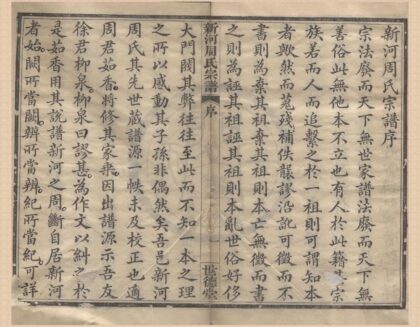 新河周氏宗譜序
宗法廢而天下無世家譜法廢而天下無
善俗此無他本不立也有人於此籍其宗
族若而人而追繫之於一祖則可謂知本
者歟然而蒐殘補佚髹謬沿訛可徵而不
書則為棄其祖棄其祖則本亡無徵而書
之則為誣其祖誣其祖則本亂世俗好侈
新河周氏宗譜
序
世德堂
大門閥其弊往往至此而不知一本之理
之所以感動其子孫非偶然矣吾邑新河
周氏其先世蔵譜源一帙未及校正也適
周君如香將修其家乘因出譜源示吾友
徐君柳泉柳泉曰謬甚為作文以糾之於
是如香用其說譜新河之周斷自居新河
者始闕所當闕辨所當辨紀所當紀可詳